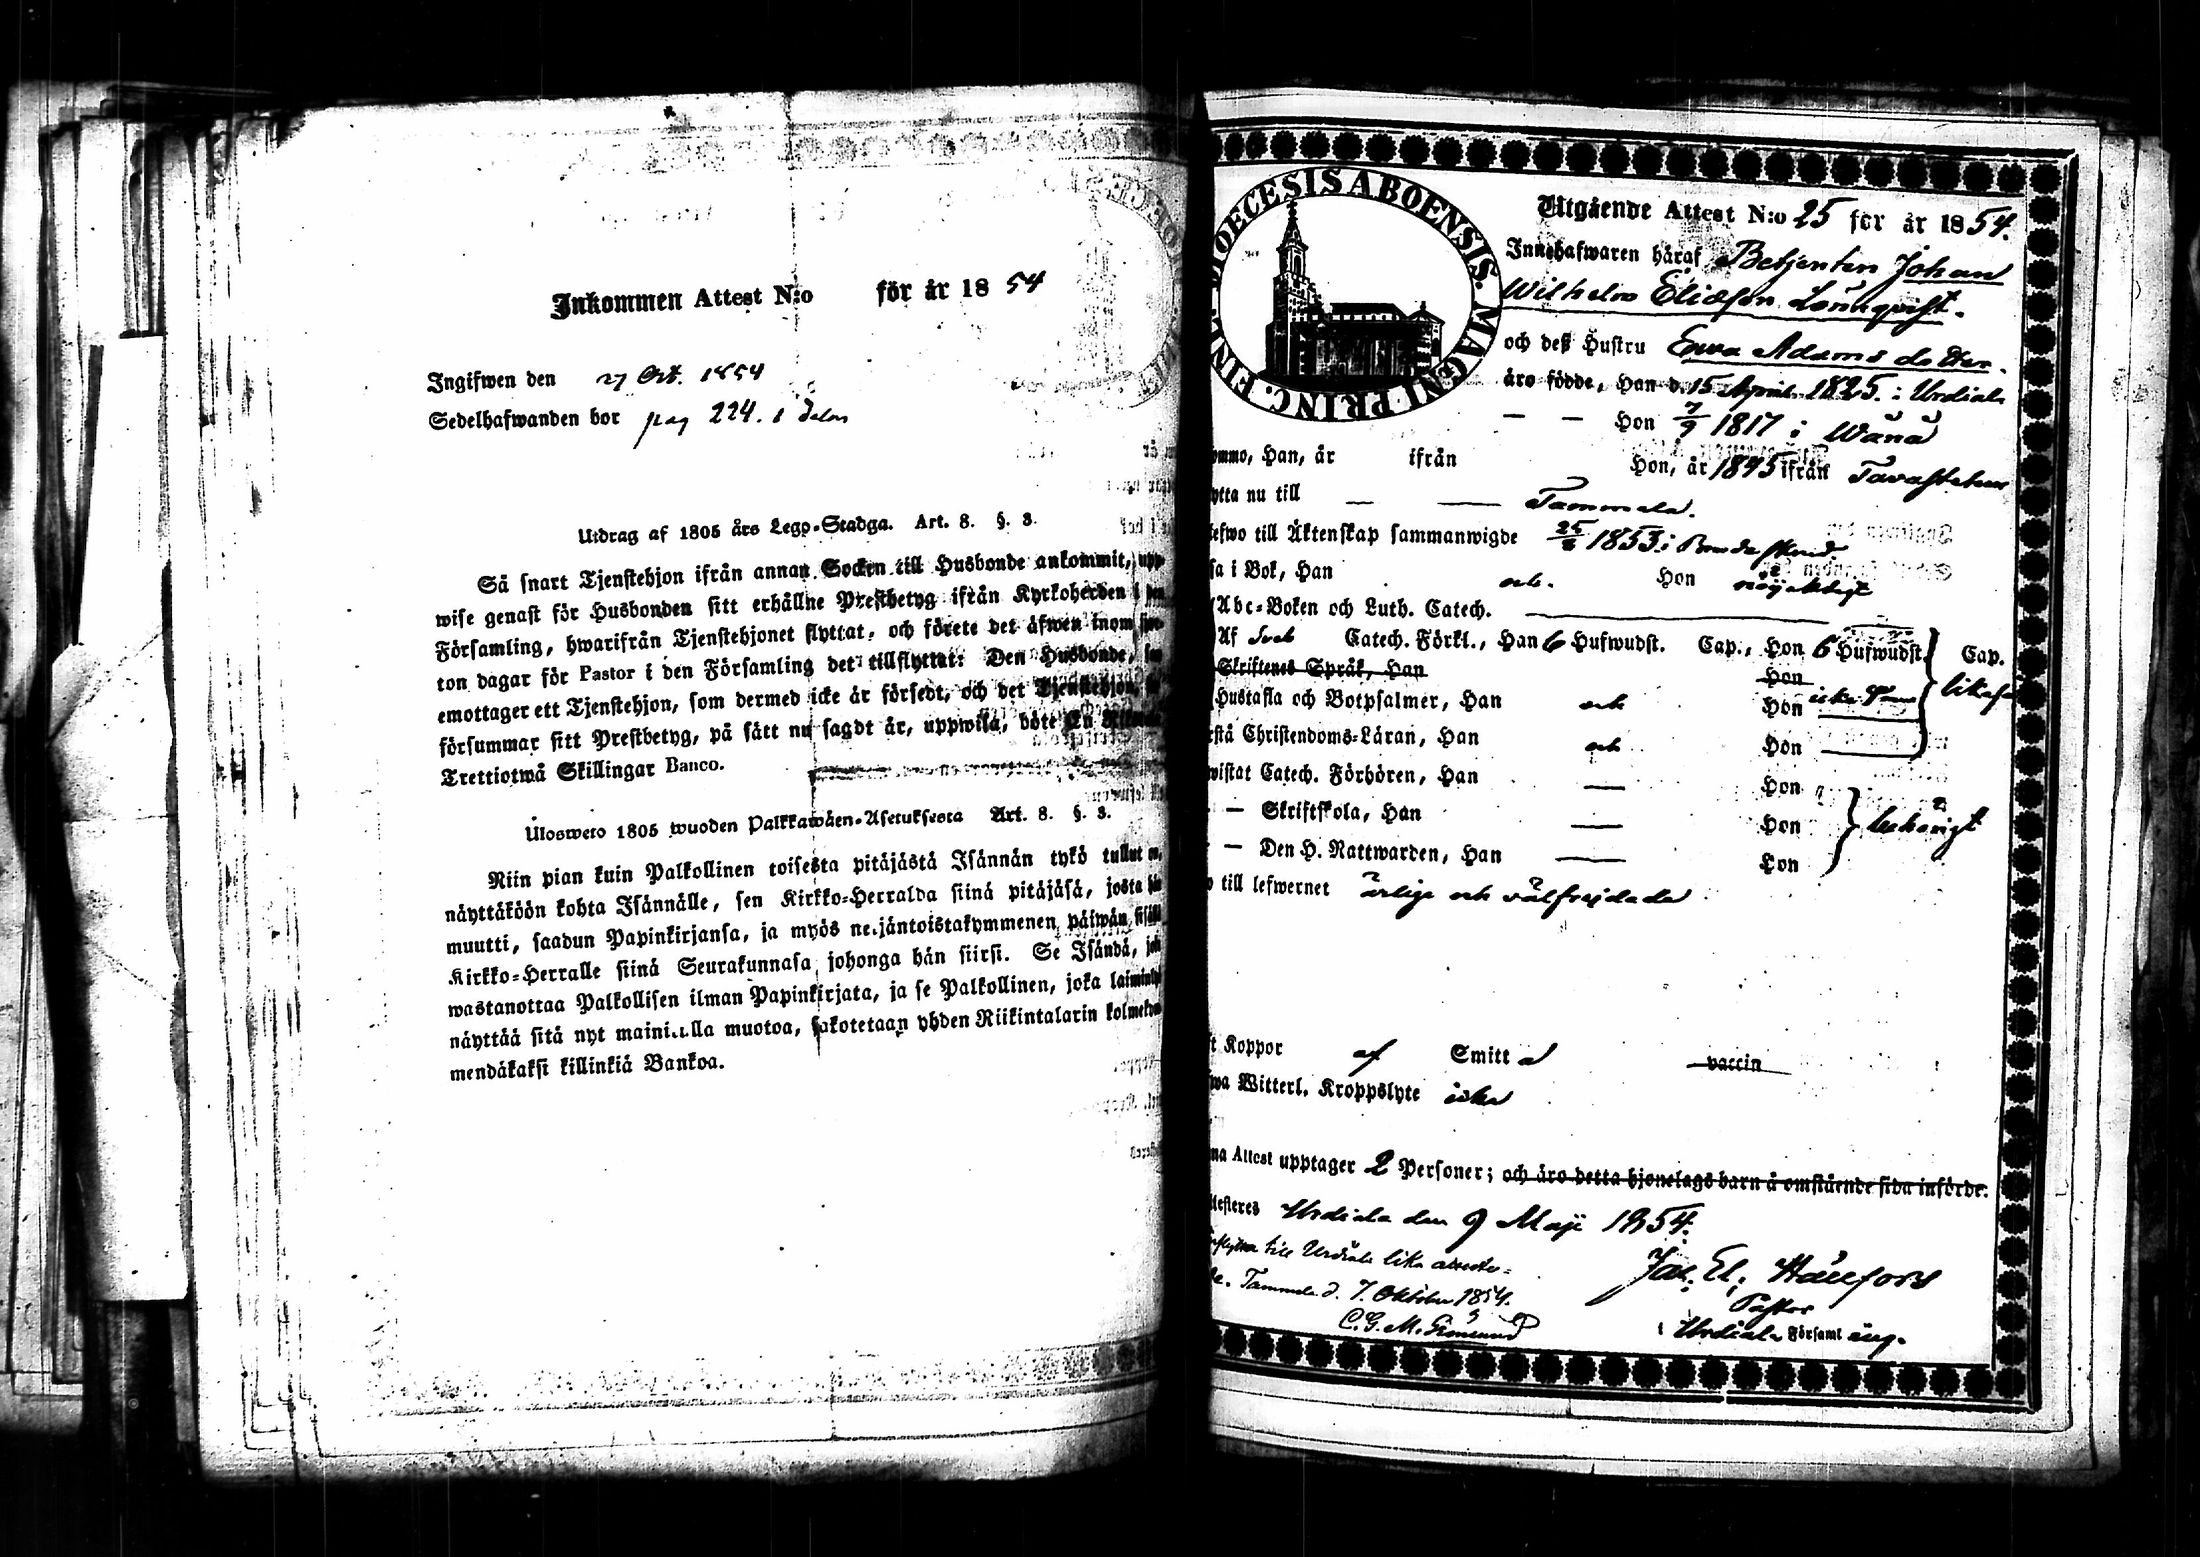 Inkommen Attest N:o för år 1854
Ingifwen den 27 Oct. 1854
Sedelhafwanden bor pag 224. i
Utdrag af 1805 års Lego-Stadga. Art. 8. §. 3.
Så snart Tjenstehjon ifrån annan Socken till Husbonde ankommit, upp-
wise genast för Husbonden sitt erhållne Prestbetyg ifrån Kyrkoherden i den
Församling, hwarifrån Tjenstehjonet flyttat, och förete det äfwen inom
ton dagar för Pastor i den Församling det tillflyttat: Den Husbonde,
emottager ett Tjenstehjon, som dermed icke är försedt, och det Tjenstehjon,
försummar sitt Prestbetyg, på sätt nu sagdt är, uppwisa, böte En
Trettiotwå Skillingar Banco.
Ulosweto 1805 wuoden Palkkawäen-Asetuksesta Art. 8. §. 3.
Niin pian kuin Palkollinen toisesta pitäjästä Isännän tykö tullut on,
näyttäköön kohta Isännälle, sen Kirkko-Herralda siinä pitäjäsä, josta hän
muutti, saadun Papinkirjansa, ja myös neljäntoistakymmenen päiwän sisällä
Kirkko-Herralle siinä Seurakunnasa johonga hän siirsi. Se Isändä, joka
wastanottaa Palkollisen ilman Papinkirjata, ja se Palkollinen, joka
näyttää sitä nyt mainitulla muotoa, sakotetaan yhden Riikintalarin kolmekym-
mendäkaksi killinkiä Bankoa.
DIOECESIS ABOENSIS. MAGNI PRINC. FINL.
Utgående Attest N:o 25 för år 1854.
Innehafwaren häraf Betjenten Johan
Wilhelm Eliasson Lönnqvist.
och deß Hustru Ewa Adamsdotter.
äro födde, Han d. 15 April 1825. i Urdiala
— — Hon 7/9 1817 i Wånå
ommo, Han, år ifrån Hon, år 1845 ifrån Tavastehus
ytta nu till — — Tammela.
lefwo till Äktenskap sammanwigde 25/6 1853 i
sa i Bok, Han och Hon nöjaktigt
Abc-Boken och Luth. Catech.
Af Sveb Catech. Förkl., Han 6 Hufwudst. Cap., Hon 6 Hufwudst. Cap.
Skriftenes Språk, Han Hon
Hustafla och Botpsalmer, Han och Hon icke
rstå Christendoms-Läran, Han och Hon
wistat Catech. Förhören, Han — Hon
— Skriftskola, Han — Hon behörigt
— Den H. Nattwarden, Han — Hon
till lefwernet ärlige och välfrejdade
ft Koppor af Smitt a vaccin
wa Witterl. Kroppslyte icke
na Attest upptager 2 Personer; och äro detta hjonelags barn å omstående sida införde.
ttesteres Urdiala den 9 Maji 1854.
till Urdiala lika
Tammela d. 7. Oktober 1854.
Jac. El. Hällfors
Pastor
i Urdiala Församling.